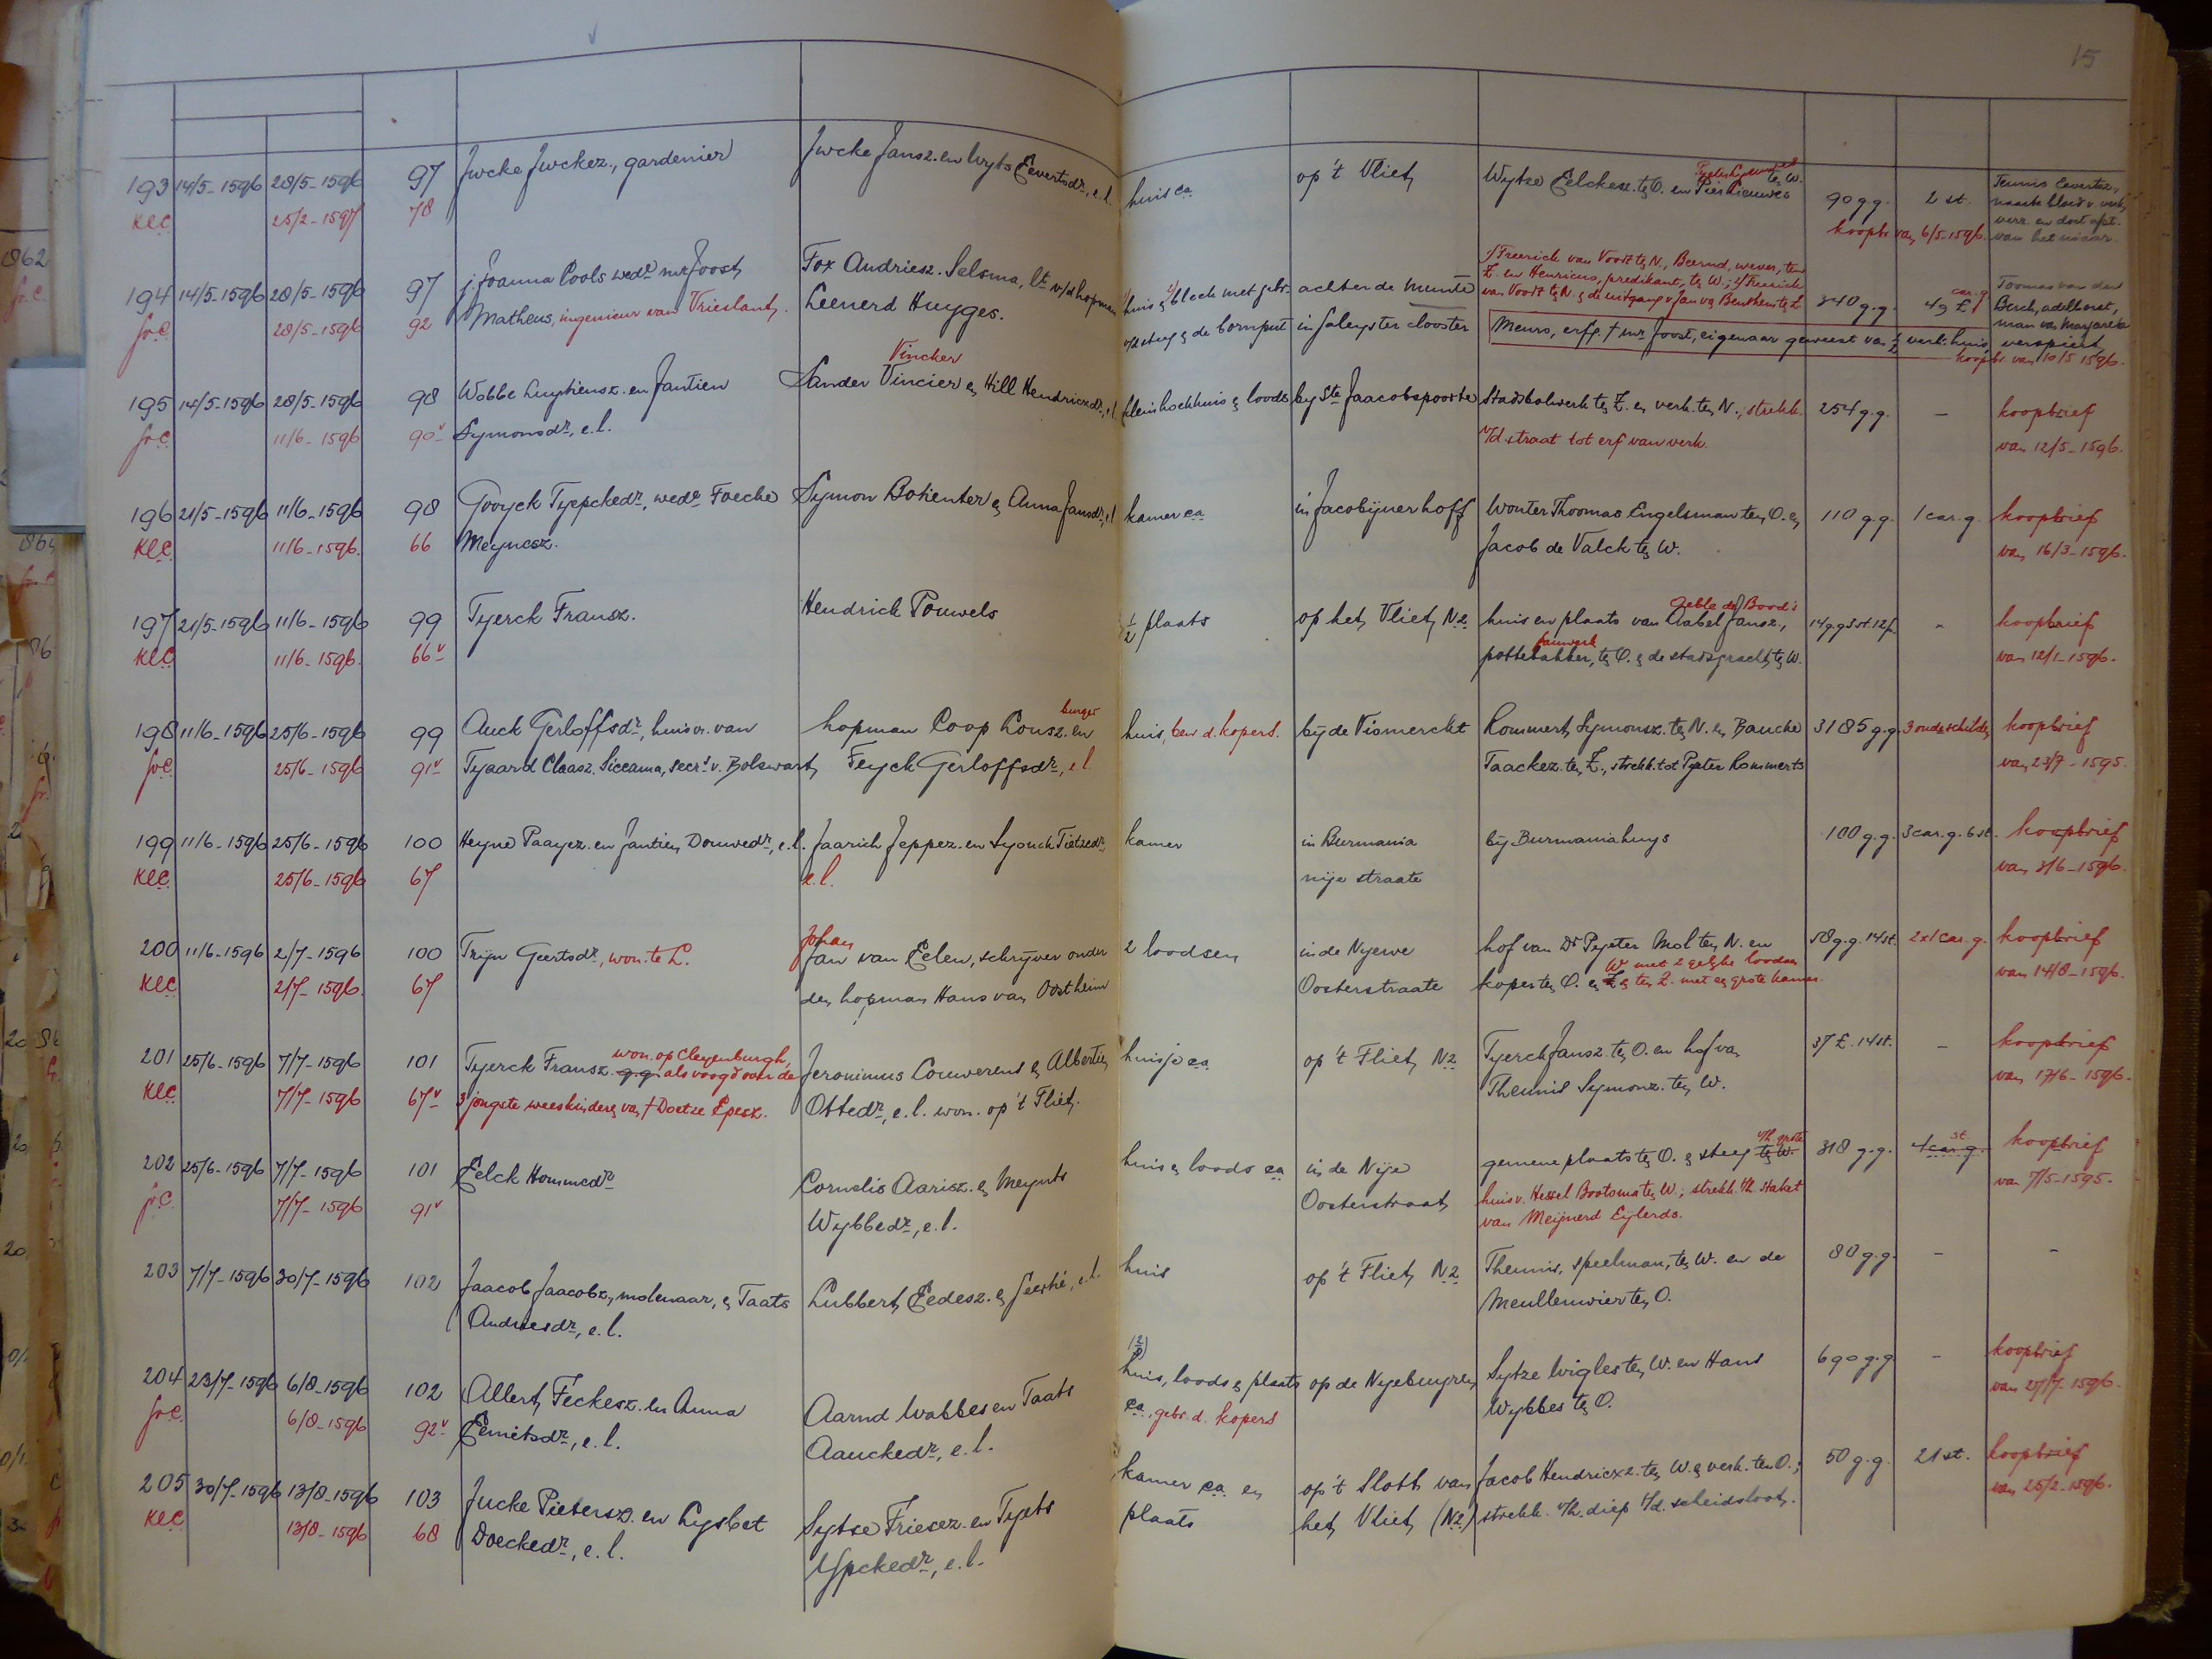 15
193 14/5-1596 28/5-1596 97 Jucke Juckez., gardenier Jucke Jansz. en Wyts Eevertsdr, e.l. huis ca op 't Vliet Wytze Eelckesz. ten O. en Pier Lieuwes ten W. 90 g.g. 2 st.
KLC 25/2-1597 78 koopbr. van 6/5-1596.
194 14/5-1596 28/5-1596 97 j. Joanna Pools wedr mr Joost Fox Andriesz. Salsma, lt v/d hopman huis & bleek met gebr. achter de Munte
1) Freerick van Voordt ten N., Beernd, wever, ten
Z. en Henricus, predikant, ten W.; 2) Freerick
van Voordt ten N. & de uitgang v. Jan van Benthem ten Z. 340 g.g. Toomas van den
Berch, adelborst,
man van Margareta
verspiert
Gr.C. 28/5-1596 92 Matheus, ingenieur van Vrieslant. Leenerd Huygges. v/d steeg & de bornput in Saleyster clooster Meurs, erfg. † mr Joost, eigenaar geweest van ½ verk. huis
koopbr. van 10/5 1596.
195 14/5-1596 28/5-1596 98 Wobbe Luytiensz. en Jantien Sander Vincier & Hill Hendricxdr, e.l. klein hoekhuis & loods by Ste Jaacobspoorte stadsbolwerk ten Z. en verk. ten N., strekk. 254 g.g. - koopbrief
Vincker
Gr.C. 11/6-1596 90v Symonsdr, e.l. v/d straat tot erf van verk. van 12/5-1596.
196 21/5-1596 11/6-1596 98 Gooyck Tyepckedr, wedr Foecke Symon Botienter & Anna Jansdr, e.l. kamer ca in Jacobijner hoff Wouter Thoomas Engelsman ten O. & 110 g.g. 1 car. g. koopbrief
KLC 11/6-1596. 66 Meynesz. Jacob de Valck ten W. van 16/3-1596.
197 21/5-1596 11/6-1596 99 Tyerck Fransz. Hendrick Pouwels ½ plaats op het Vliet NZ huis en plaats van Aabel Jansz., 14 g.g. 3 st. 12 p. - koopbrief
KLC 11/6-1596. 66v pottebakker, ten O. & de stadsgracht ten W. van 12/1-1596.
198 11/6-1596 25/6-1596 99 Auck Gerloffsdr, huisvr. van hopman Coop Lousz. en huis, bew. d. kopers. bij de Vismerckt Rommert Symonsz. ten N. en Baucke 3185 g.g. 3 oude schilden koopbrief
burger
Gr.C. 25/6-1596 91v Tyaard Claasz. Siccama, secrs v. Bolswart Feyck Gerloffsdr, e.l. Taackez. ten Z., strekk. tot Pyeter Rommerts van 23/7-1595.
199 11/6-1596 25/6-1596 100 Heyne Paayez. en Jantien Douwedr, e.l. Jaarich Jeppez. en Syouck Tietzedr, kamer in Burmania bij Burmaniahuys 100 g.g. 3 car. g. 6 st. koopbrief
KLC 25/6-1596 67 e.l. nije straate van 3/6-1596.
200 11/6-1596 2/7-1596 100 Trijn Geertsdr, won. te L. Jan van Eelen, schrijver onder 2 loodsen in de Nyewe hof van Dr Pyeter Mol ten N. en 58 g.g. 14 st. 2x1 car. g. koopbrief
Johan
KLC 2/7-1596. 67 den hopman Hans van Oostheim Oosterstraate koper ten O. & W. met 2 gelijke loodsen & ten Z. met een grote kamer. van 14/8-1596.
201 25/6-1596 7/7-1596 101 Tyerck Fransz. g.g. als voogd over de Jeronimus Louwerens & Albertien huisje ca op 't Fliet NZ Tyerck Jansz. ten O. en hof van 37 £. 14 st. - koopbrief
won. op Cleyenburgh,
KLC 7/7-1596 67v 3 jongste weeskinderen van † Doetze Epesz. Ottedr, e.l. won. op 't Fliet. Theunis Symonz. ten W. van 17/6-1596.
202 25/6-1596 7/7-1596 101 Eelck Hommedr Cornelis Aarisz. & Meynts huis & loods ca in de Nije gemene plaats ten O. & steeg ten W. 318 g.g. 4 car. g. st. koopbrief
Gr.C. 7/7-1596 91v Wybbedr, e.l. Oosterstraat huis v. Hessel Bootsma ten W.; strekk. t/h staket van 7/5-1595.
van Meijnerd Eylerds.
203 7/7-1596 30/7-1596 102 Jaacob Jaacobz., molenaar, & Taats Lubbert Eedesz. & Jeeské, e.l. huis op 't Fliet NZ Theunis, speelman, ten W. en de 80 g.g. - -
Andriesdr, e.l. Meullenwier ten O.
204 23/7-1596 6/8-1596 102 Allert Feckesz. en Anna Aarnd Wabbes en Taats huis, loods & plaats op de Nyebuyren Sytze Wigles ten W. en Hans 690 g.g. - koopbrief
Gr.C. 6/8-1596 92v Eenietsdr, e.l. Aauckedr, e.l. ca, gebr. d. kopers Wybbes ten O. van 27/7-1596.
205 30/7-1596 13/8-1596 103 Jucke Pietersz. en Lysbet Sytse Friesez. en Tyets kamer ca en op 't Slott van Jacob Hendricxz. ten W. & verk. ten O.; 50 g.g. 21 st. koopbrief
KLC 13/8-1596 68 Doeckedr, e.l. Ypckedr, e.l. plaats het Vliet (NZ) strekk. t/h diep t/d scheidsloot. van 25/2-1596.